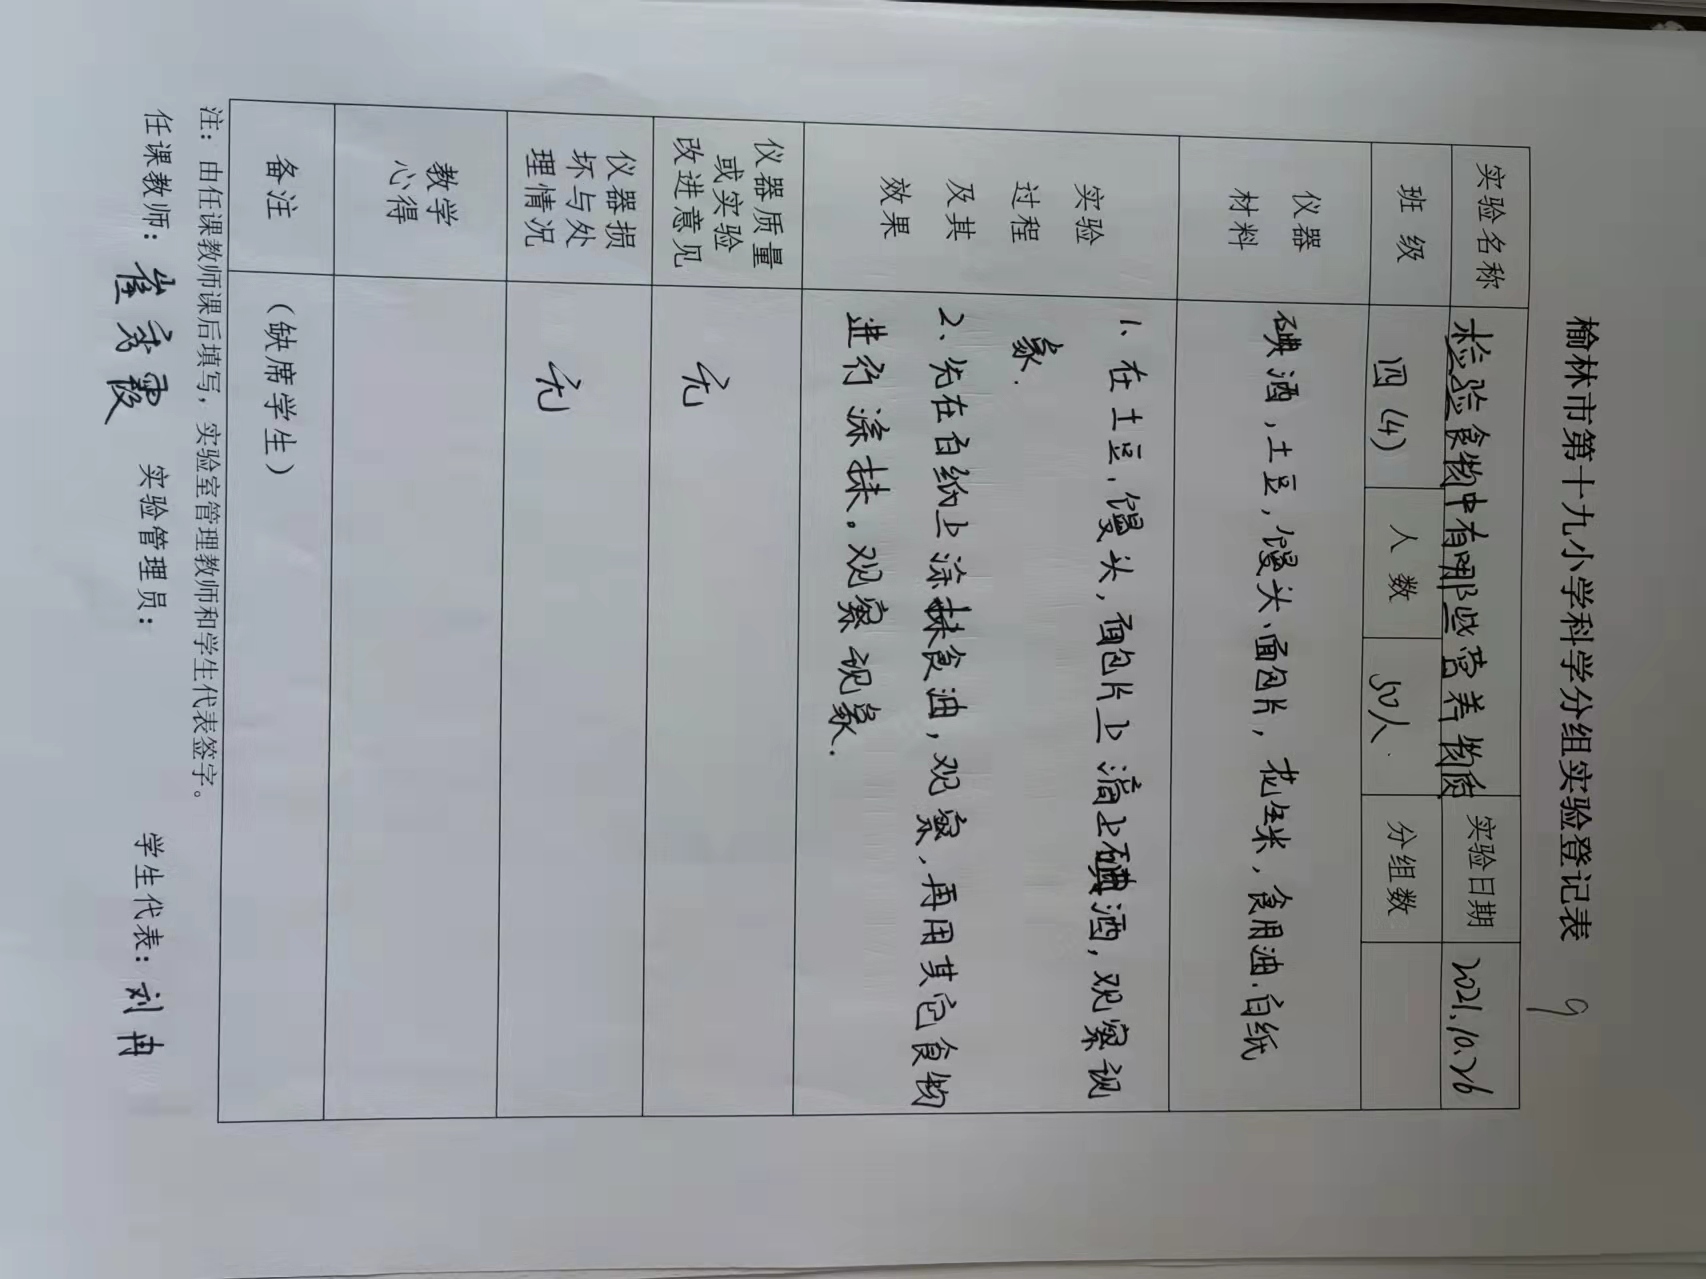 榆林市第十九小学科学分组实验登记表
9
实验名称 检验食物中有哪些营养物质 实验日期 2021.10.26
班 级 四(4) 人 数 50人. 分组数
仪器
材料
碘酒,土豆,馒头、面包片,花生米,食用油.白纸
实验
过程
及其
效果
1、在土豆、馒头,面包片上滴上碘酒,观察现
象.
2、先在白纸上涂抹食油,观察、再用其它食物
进行涂抹。观察现象.
仪器质量
或实验
改进意见
无
仪器损
坏与处
理情况
无
教学
心得
备注
(缺席学生)
注:由任课教师课后填写,实验室管理教师和学生代表签字。
任课教师:崔秀霞 实验管理员: 学生代表:刘冉